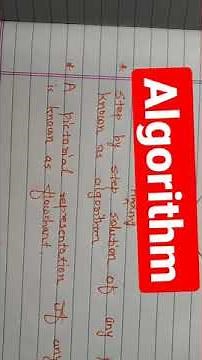 Algorithm
* Step by step solution of any
known as algorithm
* A pictorial representation of any
is known as flowchart